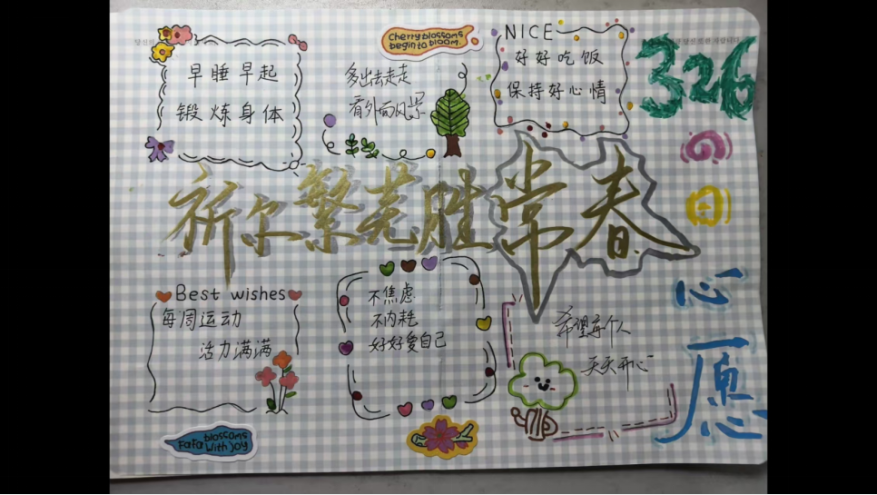 早睡早起
锻炼身体
Cherry blossoms
begin to bloom.
多出去走走
看外面风景
NICE
好好吃饭
保持好心情
326
の
日
心
愿
祈尔繁芜胜常春
Best wishes
每周运动
活力满满
不焦虑
不内耗
好好爱自己
希望每个人
天天开心
blossoms
FaFa with joy